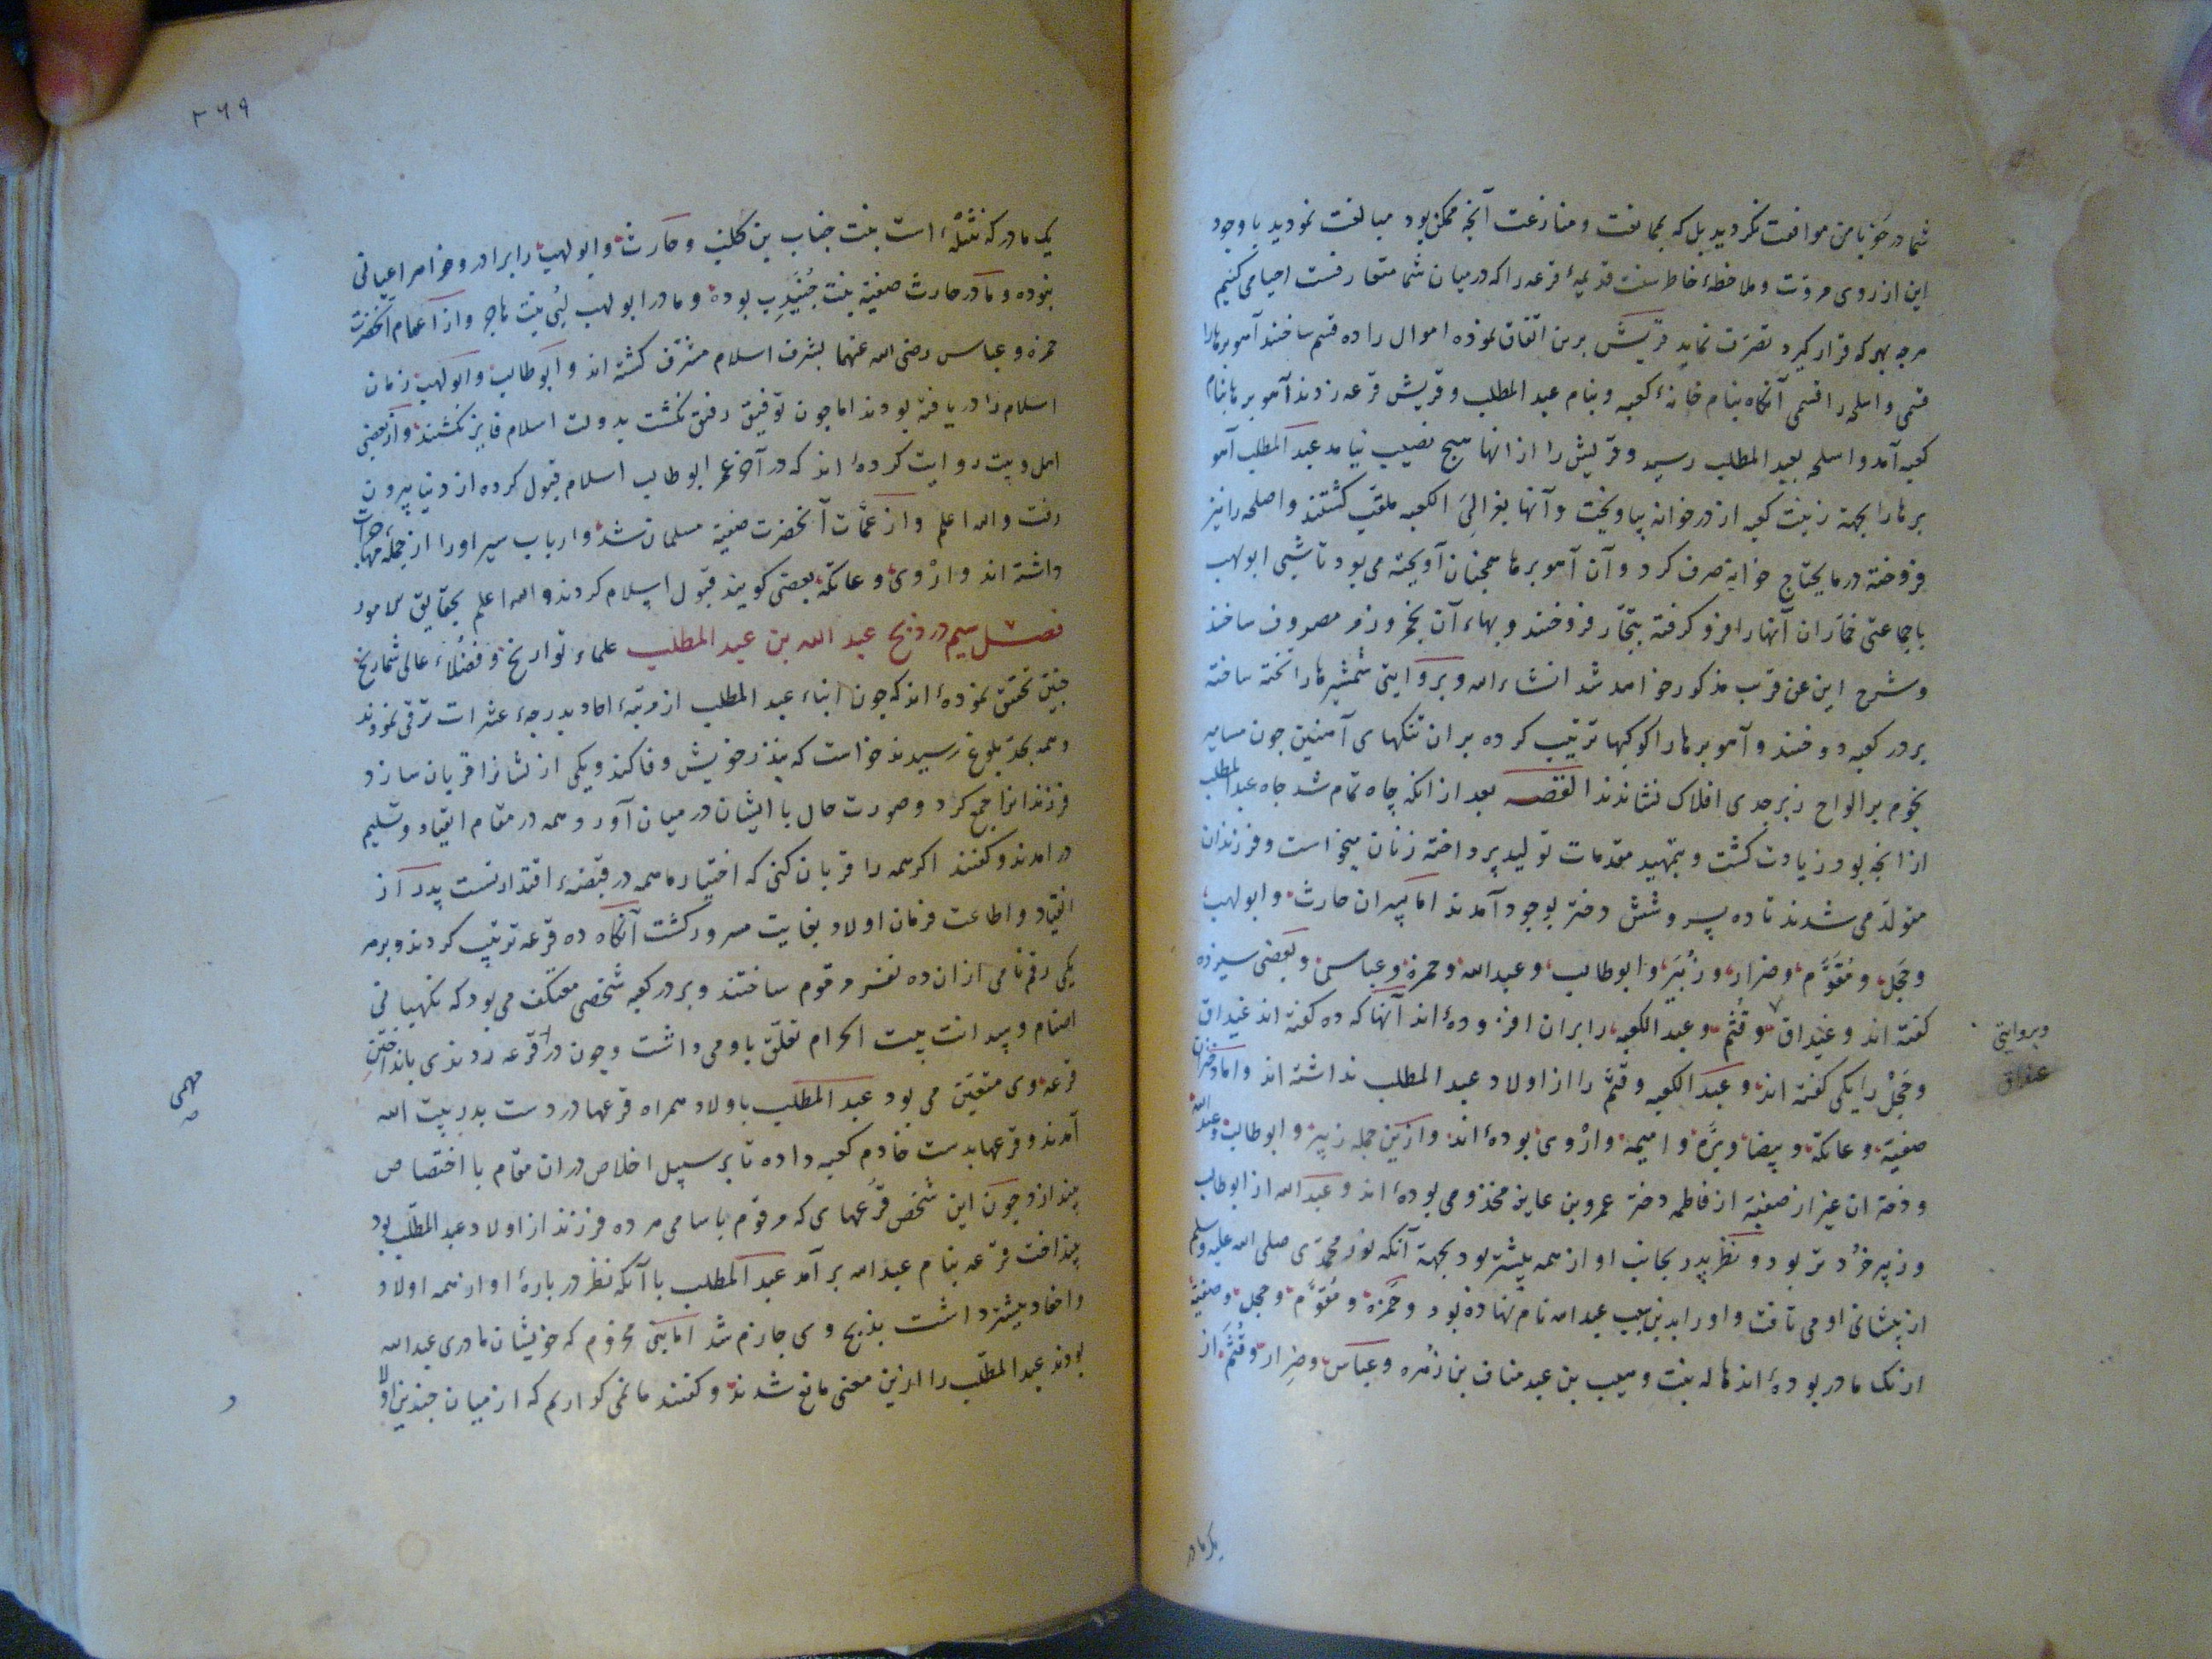 شما در حفر با من موافقت نکردید بل که بممانعت و منازعت آنچه ممکن بود مبالغت نمودید با وجود
این از روی مروّت و ملاحظهٔ خاطر سنت قدیمهٔ قرعه را که در میان شما متعارفست احیا می کنیم
هرچه بهر که قرار کیرد تصرّف نماید قریش برین اتفاق نموده اموال را ده قسم ساختند آهو برها را
قسمی و اسلحه را قسمی آنکاه بنام خانهٔ کعبه و بنام عبد المطلب و قریش قرعه زدند آهو برها بنام
کعبه آمد و اسلحه بعبد المطلب رسید و قریش را از انها هیچ نصیب نیامد عبد المطلب آهو
برها را بجهة زینت کعبه از در خوانه بیاویخت و آنها بغزالیَ الکعبه ملقب کشتند و اصلحه را نیز
فروخته در مایحتاج خوانه صرف کرد و آن آهو برها همچنان آویخته می بود تا شبی ابو لهب
با جماعتی خمّاران آنها را فرو کرفته بتجّار فروختند و بهاء آن بخمر و زمر مصروف ساختند
و شرح این عن قرب مذکور خواهد شد انشاء الله و بروایتی شمشیرها را تخته ساخته
بر در کعبه دوختند و آهو برها را کوکبها ترتیب کرده بر ان تنکهای آهنین چون مسامیر
نجوم بر الواح زبرجدی افلاک نشاندند القصه بعد از انکه چاه تمام شد جاه عبد المطلب
از انچه بود زیادت کشت و بتمهید مقدمات تولید پرداخته زنان میخواست و فرزندان
متولد می شدند تا ده پسر و شش دختر بوجود آمدند اما پسران حارث و ابو لهب
و حَجَل و مُقَوَّم و ضرار و زُبَیر و ابو طالب و عبد الله و حمزه و عباس و بعضی سیزده
کفته اند و غیداق و قُثَم و عبد الکعبه را بر ان افزوده اند آنها که ده کفته اند غیداق
و حَجْل را یکی کفته اند و عبد الکعبه و قثم را از اولاد عبد المطلب نداشته اند و اما دختران
صفیه و عاتکه و بیضا و برّه و امیمه و ارْوی بوده اند و ازین جمله زبیر و ابو طالب و عبد الله
و دختران غیر از صفیه از فاطمه دختر عمرو بن عایذ مخذومی بوده اند و عبد الله از ابو طالب
و زبیر خُرد تر بود و نظر پدر بجانب او از همه بیشتر بود بجهة آنکه نور محمدی صلی الله علیه و سلم
از پیشانی او می تافت و او را بدین سبب عبد الله نام نهاده بود و حمزه و مُقوّم و حجل و صفیه
از یک مادر بوده اند هاله بنت وهیب بن عبد مناف بن زهره و عباس و ضِرار و قُثَم از
وبروایتی
عیداق
یک مادر
۲۶۹
یک مادر که نَثْیله است بنت جناب بن کلیب و حارث و ابو لهب را برادر و خواهر اعیانی
نبوده و مادر حارث صفیه بنت جُنَیدِب بوده و مادر ابو لهب لبنی بنت هاجر و از اعمام آنحضرت
حمزه و عباس رضی الله عنهما بشرف اسلام مشرف کشته اند و ابو طالب و ابو لهب زمان
اسلام را دریافته بودند اما چون توفیق رفیق نکشت بدولت اسلام فایز نکشتند و از بعضی
اهل و بیت روایت کرده اند که در آخر عمر ابو طالب اسلام قبول کرده از دنیا بیرون
رفت و الله اعلم و از عمّات آنحضرت صفیه مسلمان شد و ارباب سیر او را از جملهٔ مهاجرات
داشته اند و ارْوی و عاتکه بعضی کویند قبول اسلام کردند و الله اعلم بحقایق الامور
فصل سیم در ذبح عبد الله بن عبد المطلب علماء تواریخ و فضلاء عالی شماریخ
چنین تحقیق نموده اند که چون ابناء عبد المطلب از مرتبهٔ احاد بدرجهٔ عشرات ترقی نمودند
و همه بحدّ بلوغ رسیدند خواست که بنذر خویش وفا کند و یکی از یشانرا قربان سازد
فرزندانرا جمع کرد و صورت حال با ایشان در میان آورد و همه در مقام انقیاد و تسلیم
در امدند و کفتند اکر همه را قربان کنی که اختیار ما همه در قبضهٔ اقتدار تست پدر از
انقیاد و اطاعت فرمان اولاد بغایت مسرور کشت آنکاه ده قرعه ترتیب کردند و بر هر
یکی رقم نامی از ان ده نفر مرقوم ساختند و بر در کعبه شخصی معتکف می بود که نکهبانی
اصنام و سدانت بیت الحرام تعلق باو می داشت و چون در قرعه زدندی بانداختن
قرعه وی متعیّن می بود عبد المطلب با ولاد همراه قرعها در دست بدر بیت الله
آمدند و قرعها بدست خادم کعبه داده تا بر سبیل اخلاص در ان مقام با اختصاص
بیندازد چون این شخص قرعهای که مرقوم باسامی هر ده فرزند از اولاد عبد المطلب بود
بینداخت قرعه بنام عبد الله برآمد عبد المطلب با آنکه نظر در بارهٔ او از همه اولاد
و احفاد بیشتر داشت بذبح وی جازم شد اما بنی مخزوم که خویشان مادری عبد الله
بودند عبد المطلب را ازین معنی مانع شدند و کفتند ما نمی کذاریم که از میان چندین اولاد
مهمی